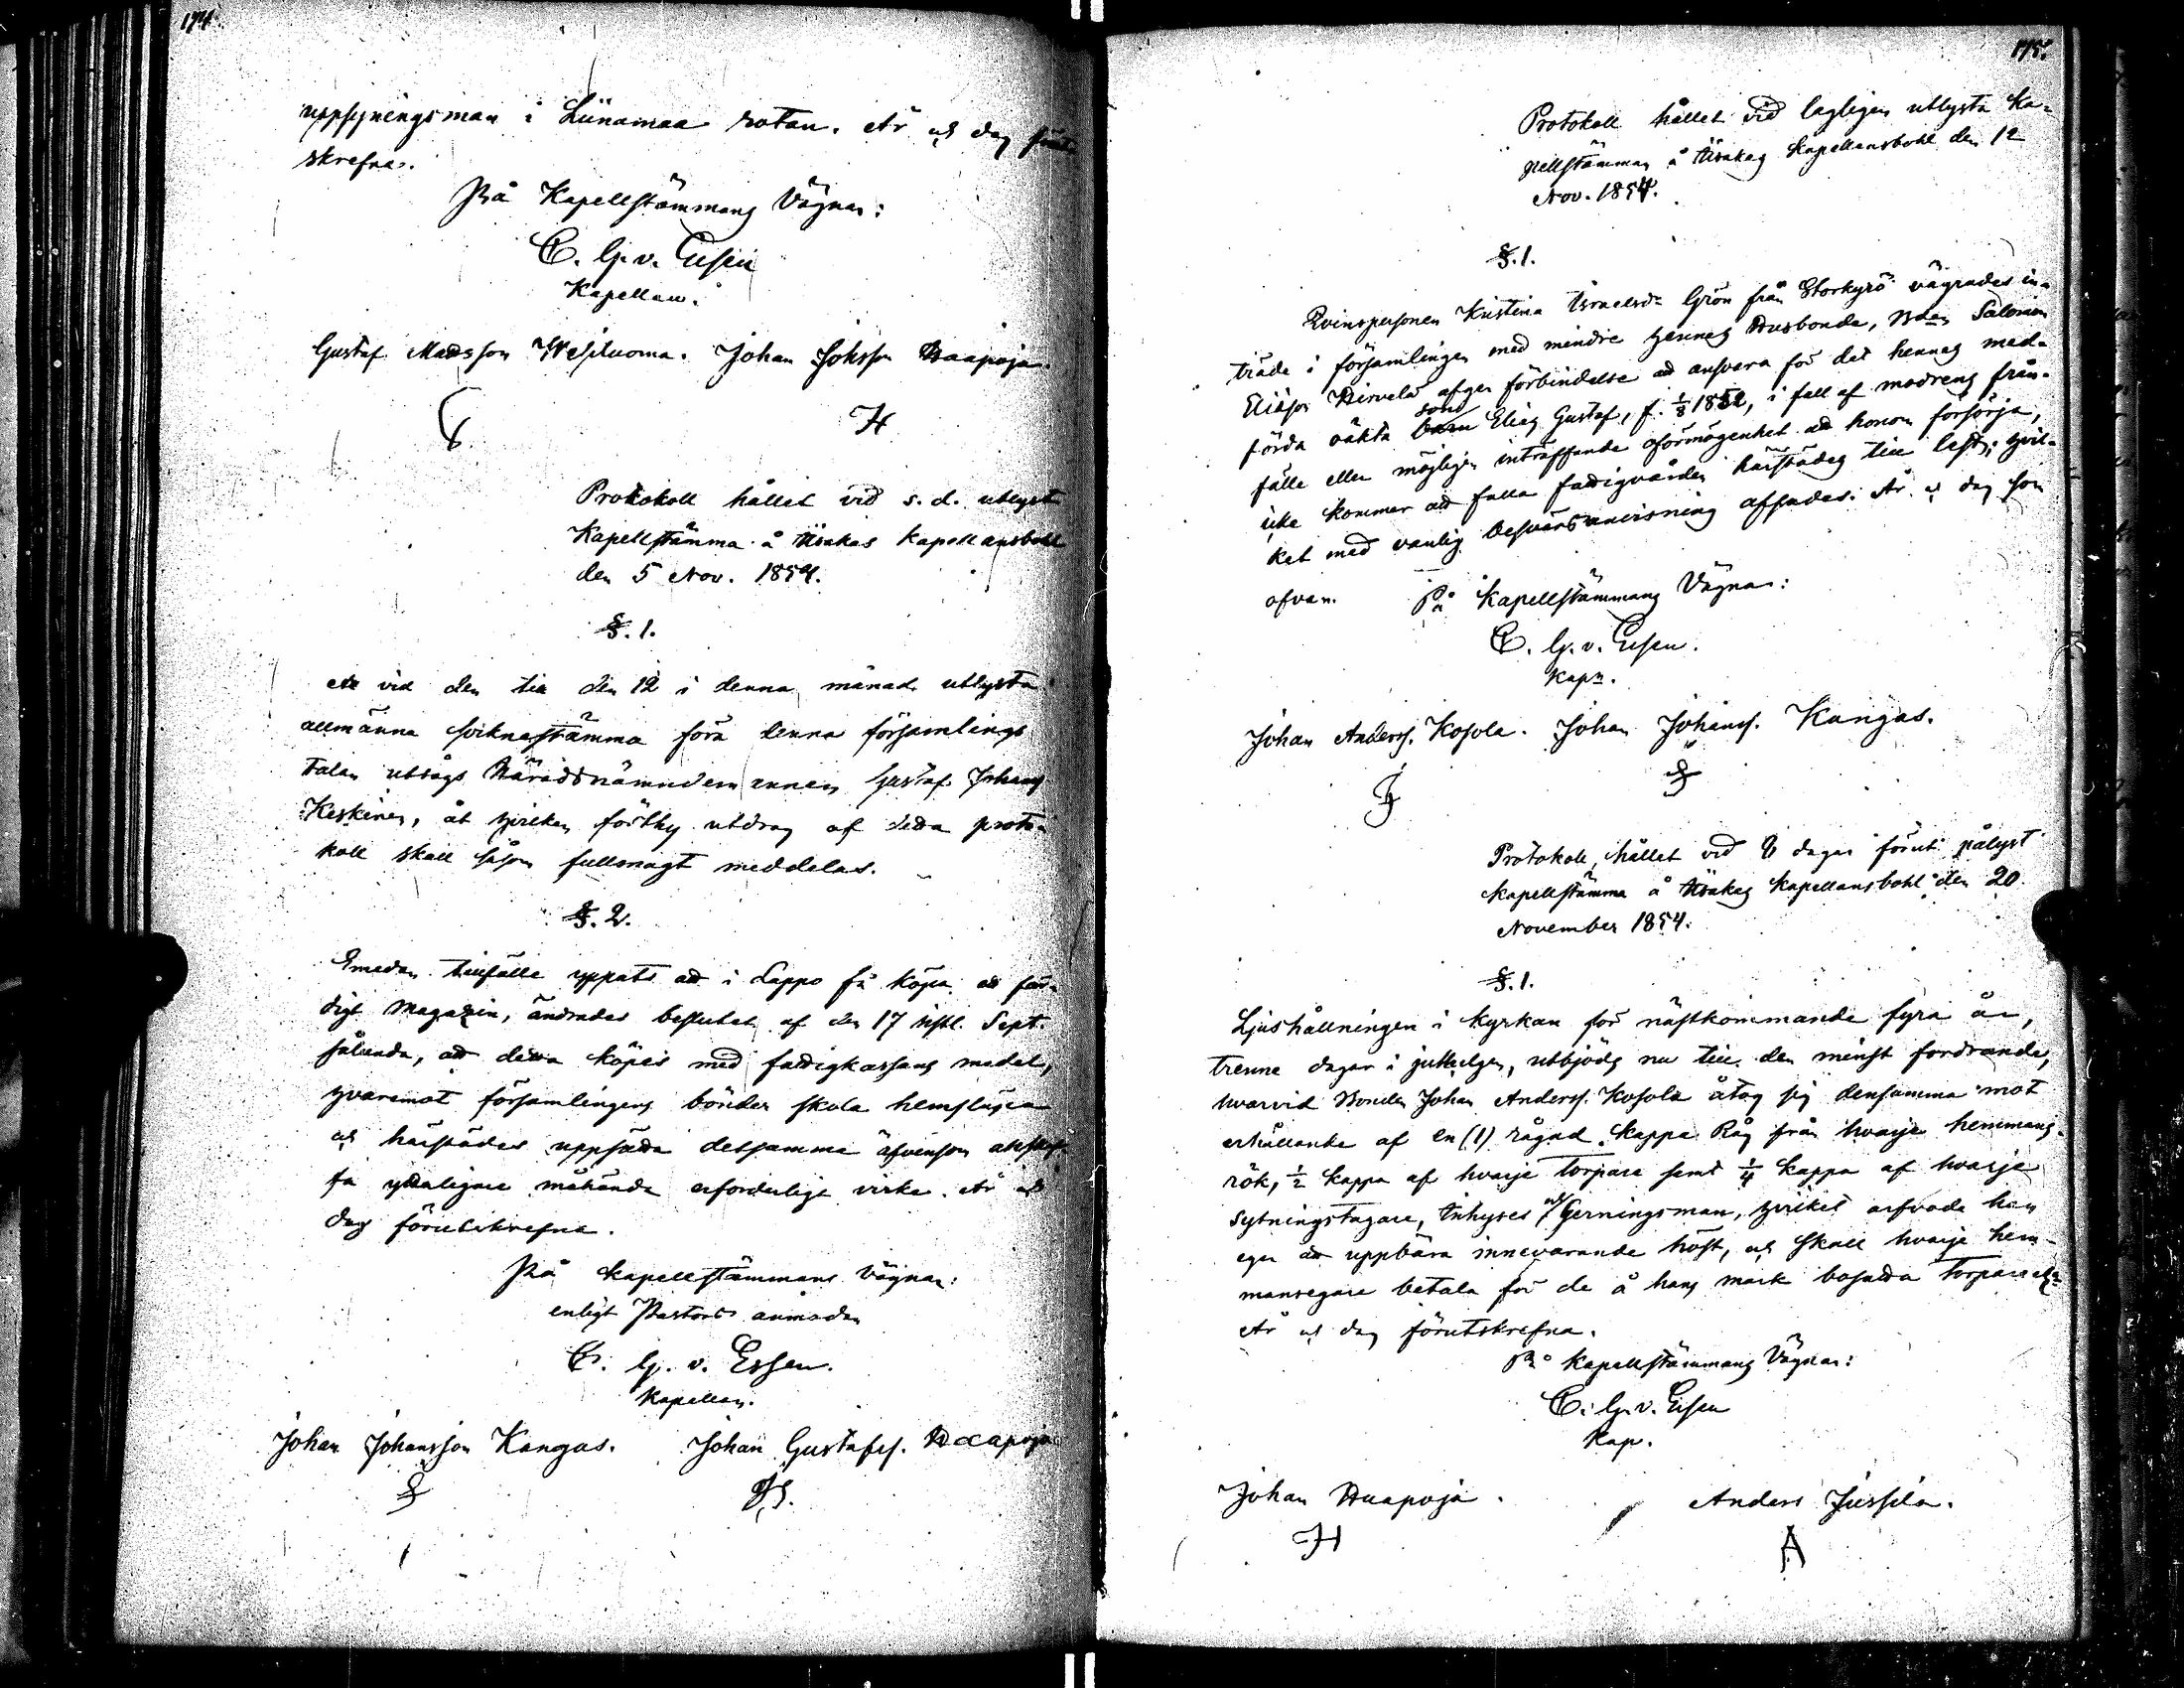 174.
uppsyningsman i Liinamaa rotan. År och dag förut-
skrefne.
På Kapellstämmans Vägnar:
C. G. v. Essen
Kapellan.
Gustaf Madsson Wesiluoma. Johan Johsson Haapoja.
H
Protokoll hållet vid s. d. utlyst
Kapellstämma å Ylikas Kapellansbohl
den 5 Nov. 1854.
§. 1.
Att vid den till den 12 i denna månad utlysta
allmänna socknestämma föra denna församlings
talan utsågs Häradsnämndemannen Gustaf Johans
Keskinen, åt hvilken förthy utdrag af detta proto-
koll skall såsom fullmagt meddelas.
§. 2.
Emedan tillfälle yppats att i Lappo få köpa ett fär-
digt Magazin, ändrades beslutet af den 17 sistl. Sept.
sålunda, att detta köpes med fattigkassans medel,
hvaremot församlingens bönder skola hemflytta
och härstädes uppsätta detsamma äfvensom anskaf-
fa ytterligare måhända erforderligt virke. År och
dag förutskrefne.
På Kapellstämmans Vägnar:
enligt Pastors anmodan
C. G. v. Essen.
Kapellan.
Johan Johansson Kangas. Johan Gustafss. Haapoja
175.
Protokoll hållet vid lagligen utlysta Ka-
pellstämman å Ylikas Kapellansbohl den 12
Nov. 1854.
§. 1.
Qvinspersonen Kristina Israelsdr Grön från Storkyrö vägrades in-
träde i församlingen med mindre hennes Husbonde, Bden Salomon
Eliasson Hirvelä afger förbindelse att ansvara för det hennes med-
förda oäkta barn son Elias Gustaf, f. 1/8 1852, i fall af modrens från-
fälle eller möjligen inträffande oförmögenhet att honom försörja,
icke kommer att falla fattigvården härstädes till last; hvil-
ket med vanlig besvärsanvisning afsades. År och dag som
ofvan. På Kapellstämmans Vägnar:
C. G. v. Essen.
Kapn.
Johan Anderss. Kosola. Johan Johanss. Kangas.
Protokoll, hållet vid 8 dagar förut pålyst
Kapellstämma å Ylikas Kapellansbohl den 20
November 1854.
§. 1.
Ljushållningen i Kyrkan för nästkommande fyra år,
trenne dagar i julhelgen, utbjöds nu till den minst fordrande,
hvarvid Bonden Johan Anderss. Kosola åtog sig densamma mot
erhållande af en (1) rågad Kappe Råg från hvarje hemmans-
rök, 1/2 Kappe af hvarje Torpare samt 1/4 Kappa af hvarje
Sytningstagare, Inhyses och Gerningsman, hvilket arfvode han
eger att uppbära innevarande höst, och skall hvarje hem-
mansegare betala för de å hans mark bosatta Torpare etc.
År och dag förutskrefne.
På Kapellstämmans Vägnar:
C. G. v. Essen
Kap.
Johan Haapoja. Anders Jussila.
H A